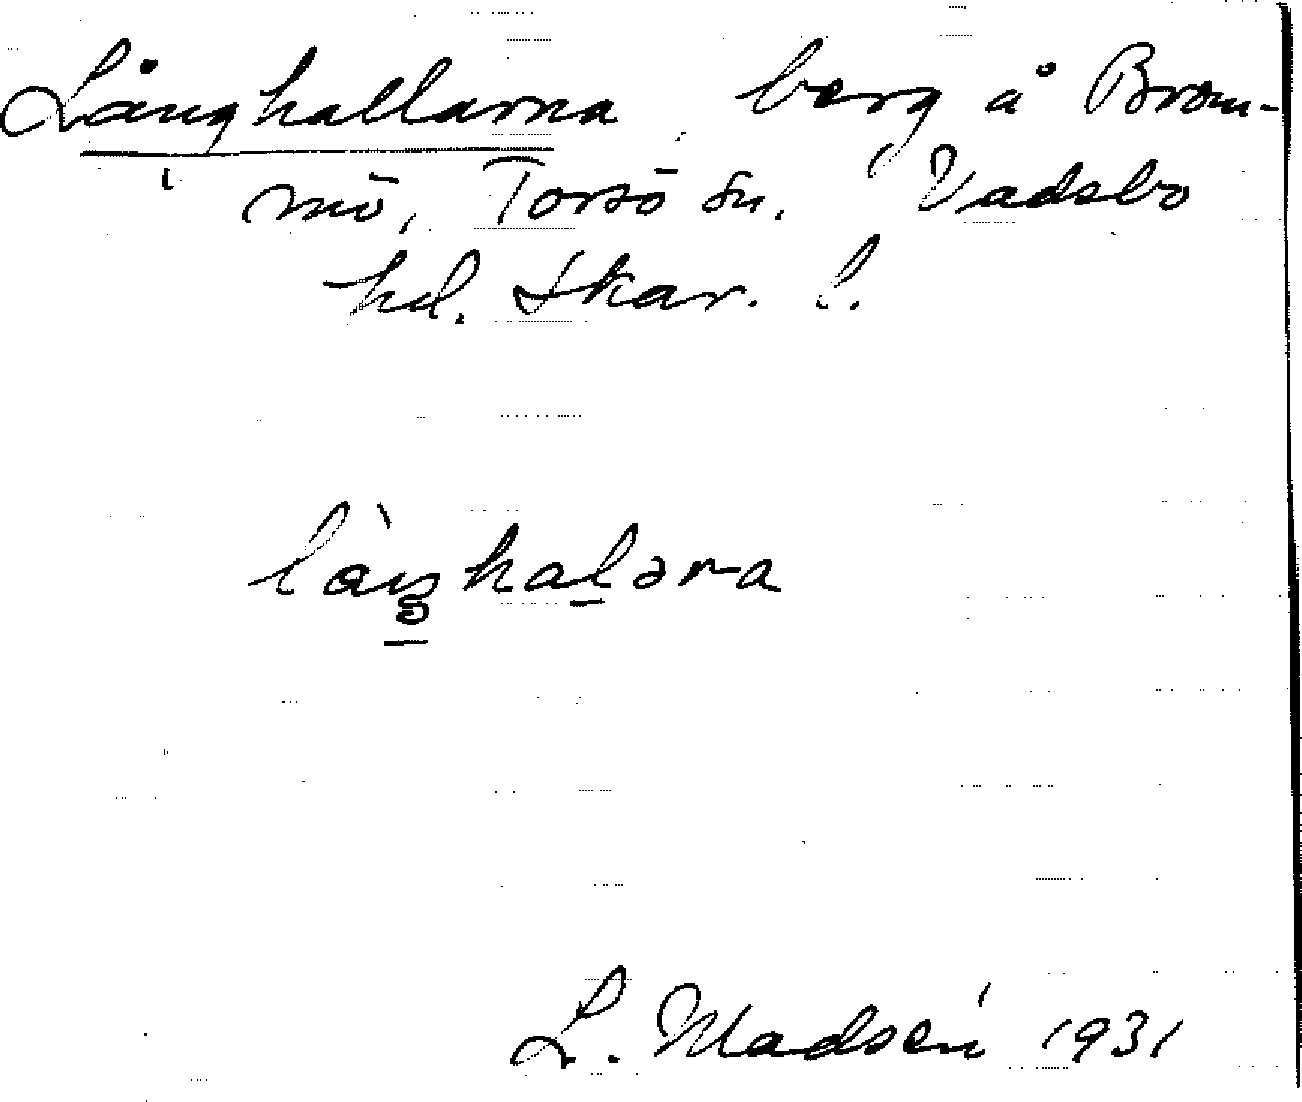 Långhallarna, berg å Brom-
mö, Torsö sn. Vadsbo
hd. Skar. l.
L. Madsén 1931